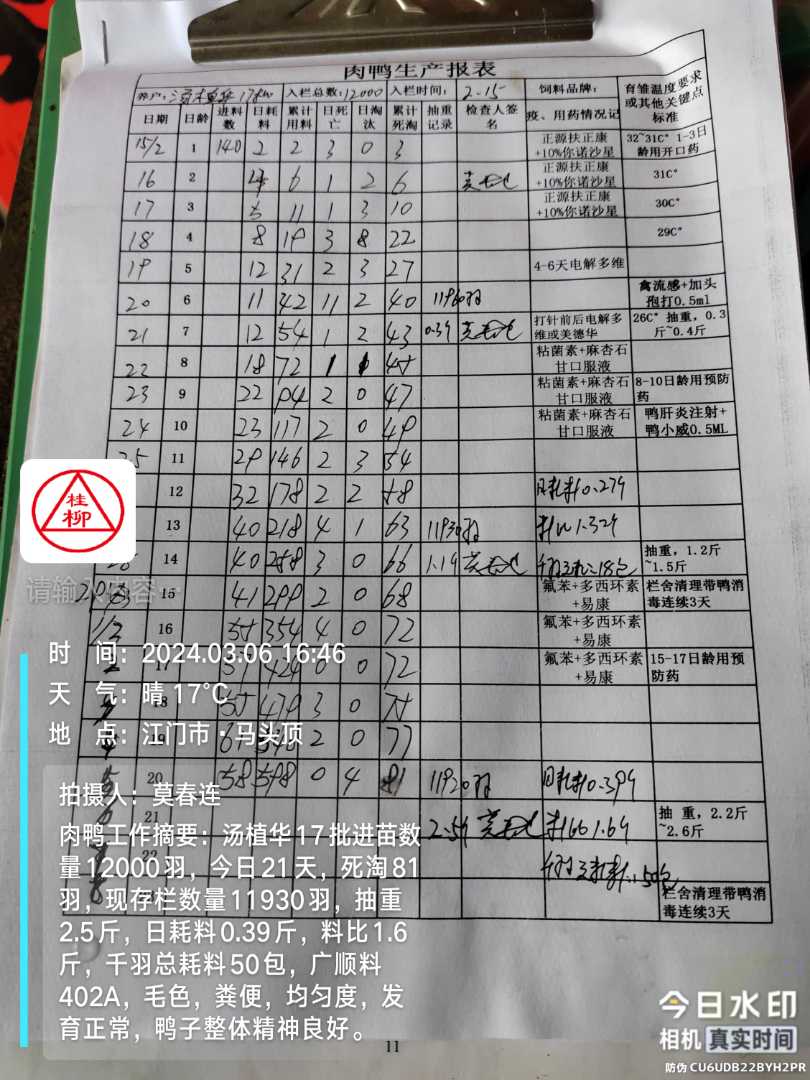 肉鸭生产报表
养户: 汤植华17批 入栏总数: 12000 入栏时间: 2-15 饲料品牌: 育雏温度要求或其他关键点标准
日期 日龄 进料数 日耗料 累计用料 日死亡 日淘汰 累计死淘 抽重记录 检查人签名 疫、用药情况记
15/2 1 140 2 2 3 0 3 正源扶正康+10%你诺沙星 32~31C° 1-3日龄用开口药
16 2 4 6 1 2 6 正源扶正康+10%你诺沙星 31C°
17 3 5 11 1 3 10 正源扶正康+10%你诺沙星 30C°
18 4 8 19 3 8 22 29C°
19 5 12 31 2 3 27 4-6天电解多维
20 6 11 42 11 2 40 11960羽 禽流感+加头孢打0.5ml
21 7 12 54 1 2 43 0.39 打针前后电解多维或美德华 26C° 抽重,0.3斤~0.4斤
22 8 18 72 1 1 45 粘菌素+麻杏石甘口服液
23 9 22 94 2 0 47 粘菌素+麻杏石甘口服液 8-10日龄用预防药
24 10 23 117 2 0 49 粘菌素+麻杏石甘口服液 鸭肝炎注射+鸭小威0.5ML
25 11 29 146 2 3 54
12 32 178 2 2 58 日耗料0.27斤
13 40 218 4 1 63 11930羽 料比1.32斤
28 14 40 258 3 0 66 1.1斤 千羽总耗料18包 抽重,1.2斤~1.5斤
29 15 41 299 2 0 68 氟苯+多西环素+易康 栏舍清理带鸭消毒连续3天
1/3 16 55 354 4 0 72 氟苯+多西环素+易康
2 17 424 0 0 72 氟苯+多西环素+易康 15-17日龄用预防药
18 55 479 3 0 75
4 19 2 0 77
5 20 58 598 0 4 81 11920羽 日耗料0.39斤
21 2.5斤 料比1.6斤 抽重,2.2斤~2.6斤
22 千羽总耗料50包
栏舍清理带鸭消毒连续3天
桂柳
请输入内容
时 间: 2024.03.06 16:46
天 气: 晴 17℃
地 点: 江门市·马头顶
拍摄人: 莫春连
肉鸭工作摘要: 汤植华17批进苗数
量12000羽,今日21天,死淘81
羽,现存栏数量11930羽,抽重
2.5斤,日耗料0.39斤,料比1.6
斤,千羽总耗料50包,广顺料
402A,毛色,粪便,均匀度,发
育正常,鸭子整体精神良好。
11
今日水印
相机 真实时间
防伪 CU6UDB22BYH2PR